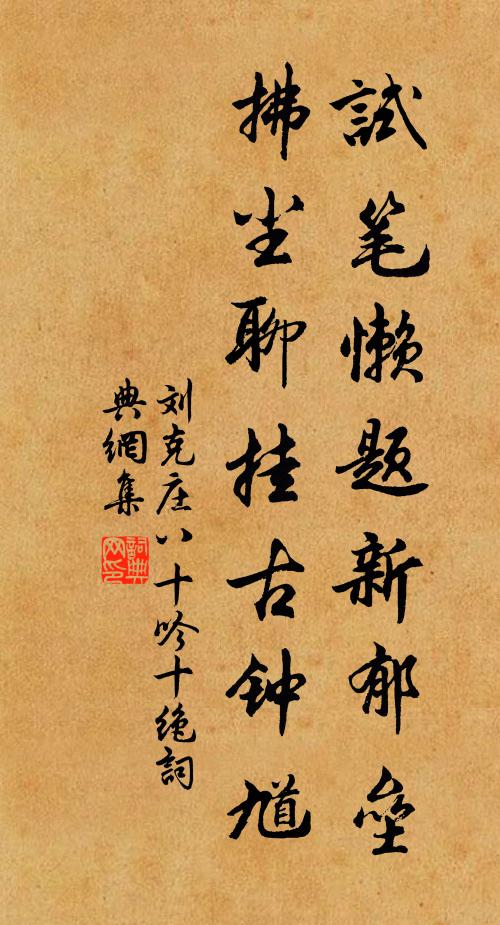 試笔懒题新郁垒
拂尘聊挂古钟馗
刘克庄八十吟十绝詞
典網集
詞典網印